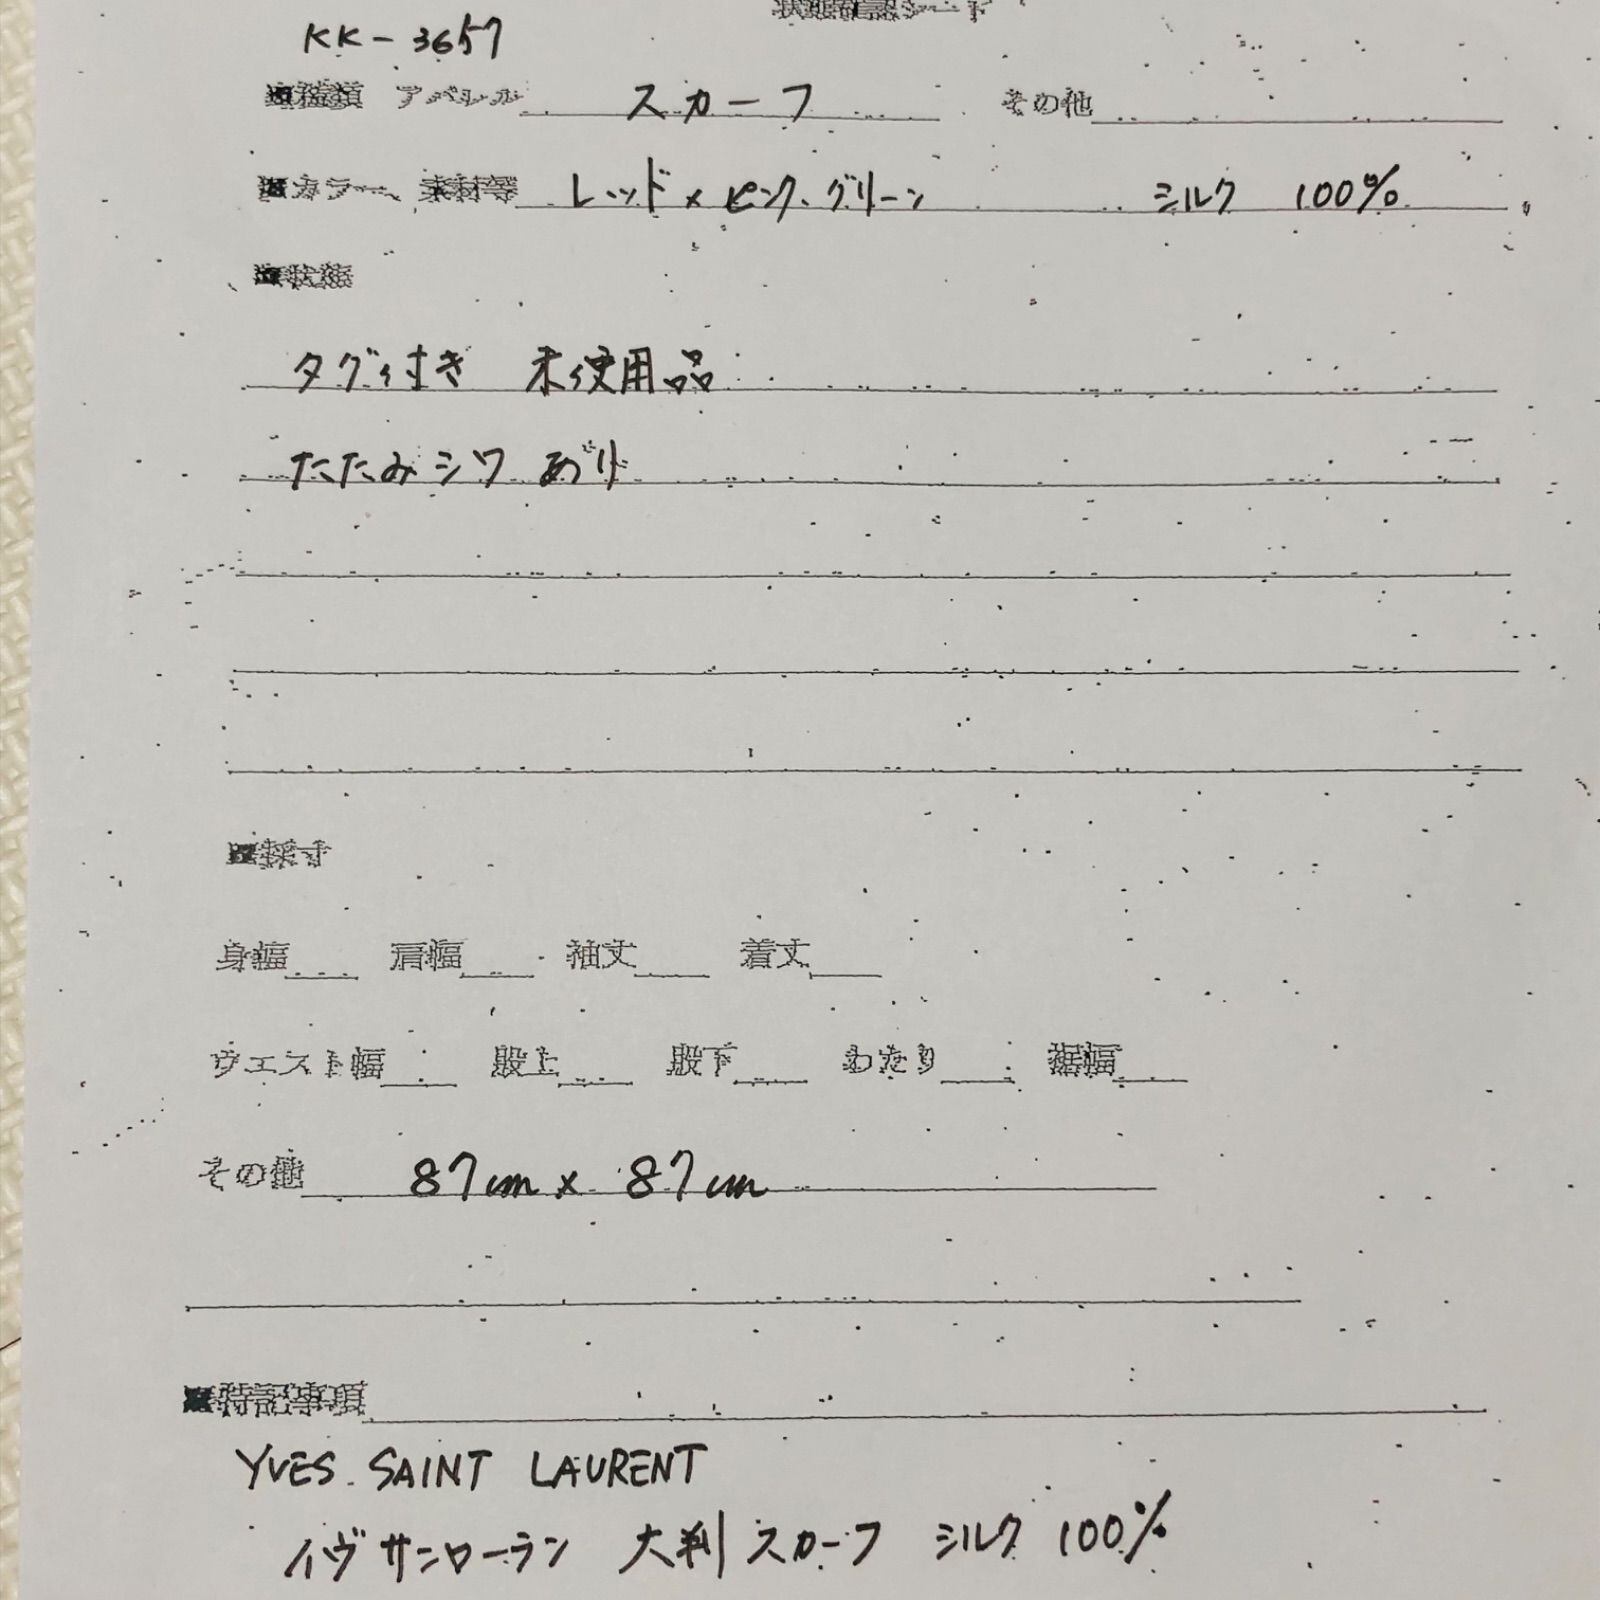 状態確認シート
KK-3657
■種類 アパレル スカーフ その他
■カラー、素材等 レッド×ピンク、グリーン シルク 100%
■状態
タグ付き 未使用品
たたみシワ あり
■採寸
身幅 肩幅 袖丈 着丈
ウエスト幅 股上 股下 わたり 裾幅
その他 87cm × 87cm
■特記事項
YVES SAINT LAURENT
イヴサンローラン 大判スカーフ シルク 100%